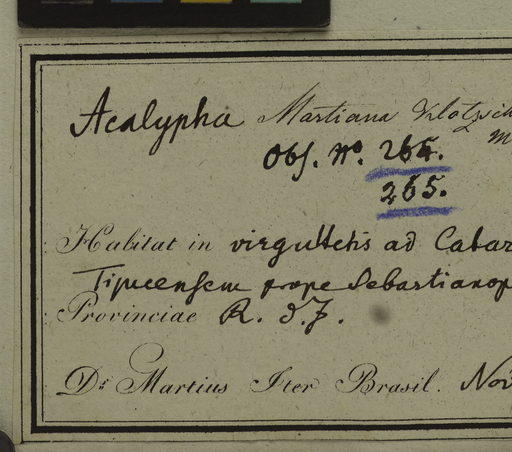 Acalypha Martiana Klotzsch
m
Obs. No. 264.
265.
Habitat in virgultetis ad Catar
Tijucensem prope Sebastianop
Provinciae R. d. J.
Dr. Martius Iter Brasil. Nov